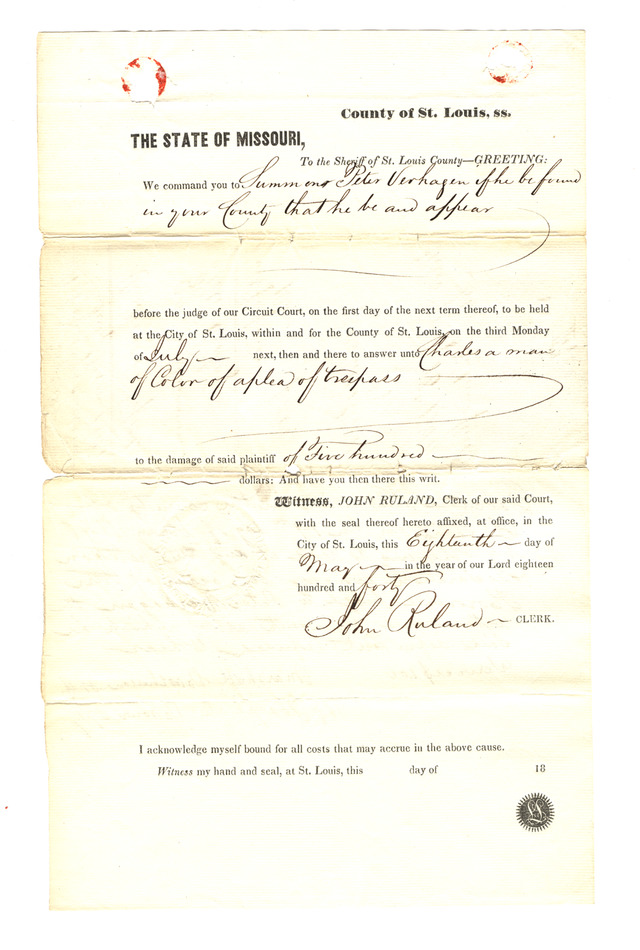 County of St. Louis, ss.
THE STATE OF MISSOURI,
To the Sheriff of St. Louis County—GREETING:
We command you to Summons Peter Verhagen if he be found
in your County that he be and appear
before the judge of our Circuit Court, on the first day of the next term thereof, to be held
at the City of St. Louis, within and for the County of St. Louis, on the third Monday
of July next, then and there to answer unto Charles a man
of Color of a plea of trespass
to the damage of said plaintiff of Five hundred
dollars: And have you then there this writ.
Witness, JOHN RULAND, Clerk of our said Court,
with the seal thereof hereto affixed, at office, in the
City of St. Louis, this Eighteenth day of
May in the year of our Lord eighteen
hundred and forty
John Ruland CLERK.
I acknowledge myself bound for all costs that may accrue in the above cause.
Witness my hand and seal, at St. Louis, this day of 18